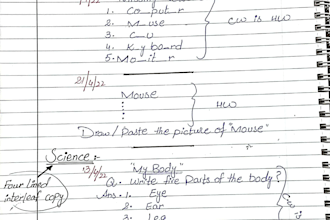 1. Co_put_r
2. M_use
3. C_U
CW is HW
4. K_y board
5. Mo_it_r
21/4/22
Mouse
HW
"Draw/Paste the picture of "Mouse"
Science :-
"My Body"
Four lined
interleaf copy
Q. Write five Parts of the body?
Ans. 1. Eye
2. Ear
3. Leg